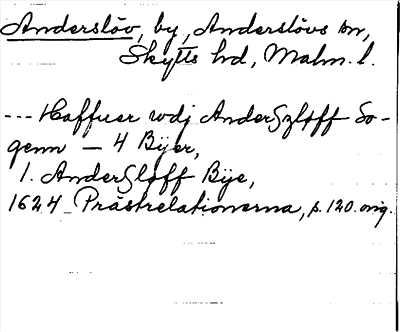 Anderslöv, by, Anderslövs sn,
Skytts hd, Malm. l.
--- Haffuer udj Anderßløff So-
genn — 4 Byer,
1. Anderßløff Bye,
1624 Prästrelationerna, s. 120. orig.